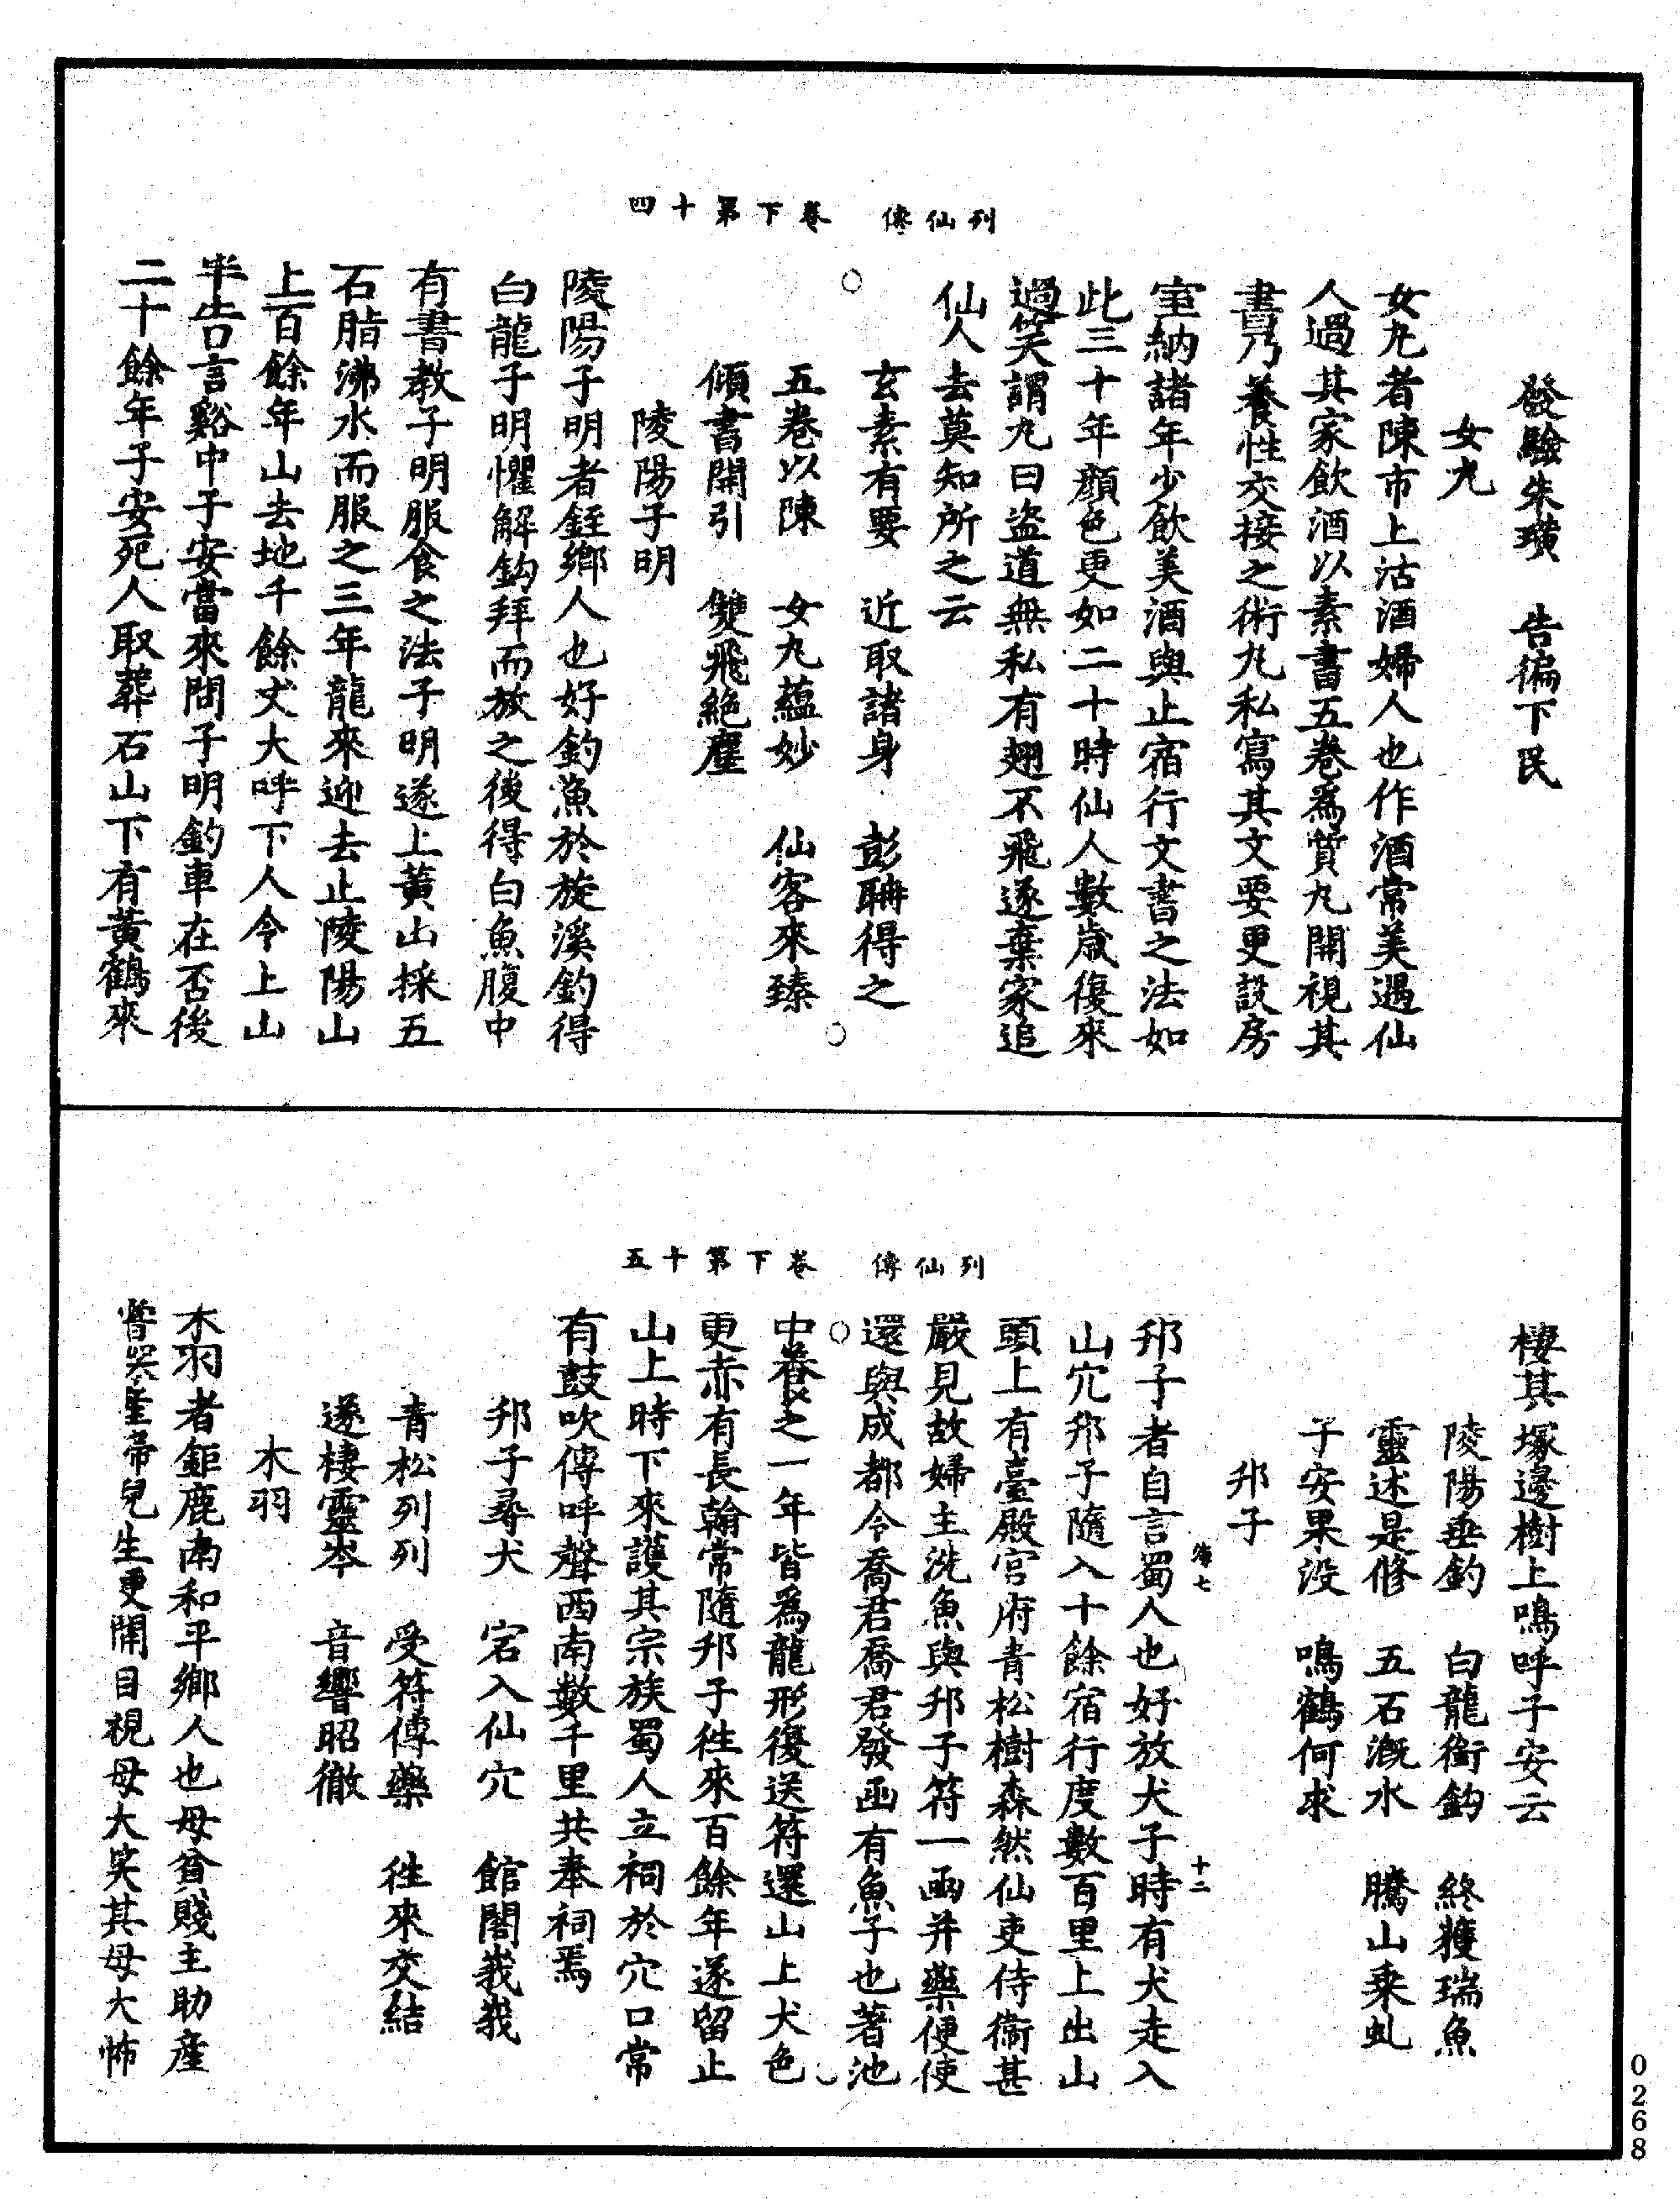 發驗朱璜　告徧下民
女丸
女丸者陳市上沽酒酒婦人也作酒常美遇仙
人過其家飲酒以素書五卷為質丸開視其
書乃養性交接之術丸私寫其文要更設房
室納諸年少飲美酒與止宿行文書之法如
此三十年顏色更如二十時仙人數歲復來
過笑謂丸曰盜道無私有翅不飛遂棄家追
仙人去莫知所之云
玄素有要　近取諸身　彭聃得之
五卷以陳　女丸蘊妙　仙客來臻
傾書開引　雙飛絕塵
陵陽子明
列仙傳　卷下第十四
陵陽子明者銍鄉人也好釣漁於旋溪釣得
白龍子明懼解鈎拜而放之後得白魚腹中
有書教子明服食之法子明遂上黃山採五
石脂沸水而服之三年龍來迎去止陵陽山
上百餘年山去地千餘丈大呼下人令上山
半告言谿中子安當來問子明釣車在否後
二十餘年子安死人取葬石山下有黃鶴來
棲其塚邊樹上鳴呼子安云
陵陽垂釣　白龍銜鈎　終獲瑞魚
靈述是修　五石溉水　騰山乘虬
子安果沒　鳴鶴何求
邘子
邘子者自言蜀人也好放犬子時有犬走入
山穴邘子隨入十餘宿行度數百里上出山
頭上有臺殿宮府青松樹森然仙吏侍衞甚
嚴見故婦主洗魚與邘子符一函并藥便使
還與成都令喬君喬君發函有魚子也著池
中養之一年皆為龍形復送符還山上犬色
更赤有長翰常隨邘子往來百餘年遂留止
山上時下來護其宗族蜀人立祠於穴口常
有鼓吹傳呼聲西南數千里共奉祠焉
列仙傳　卷下第十五
海七　十二
邘子尋犬　宕入仙穴　館閣峩峩
青松列列　受符傳藥　往來交結
遂棲靈岑　音響昭徹
木羽
木羽者鉅鹿南和平鄉人也母貧賤主助產
嘗探產帝兒生更開目視母大笑其母大怖
0268